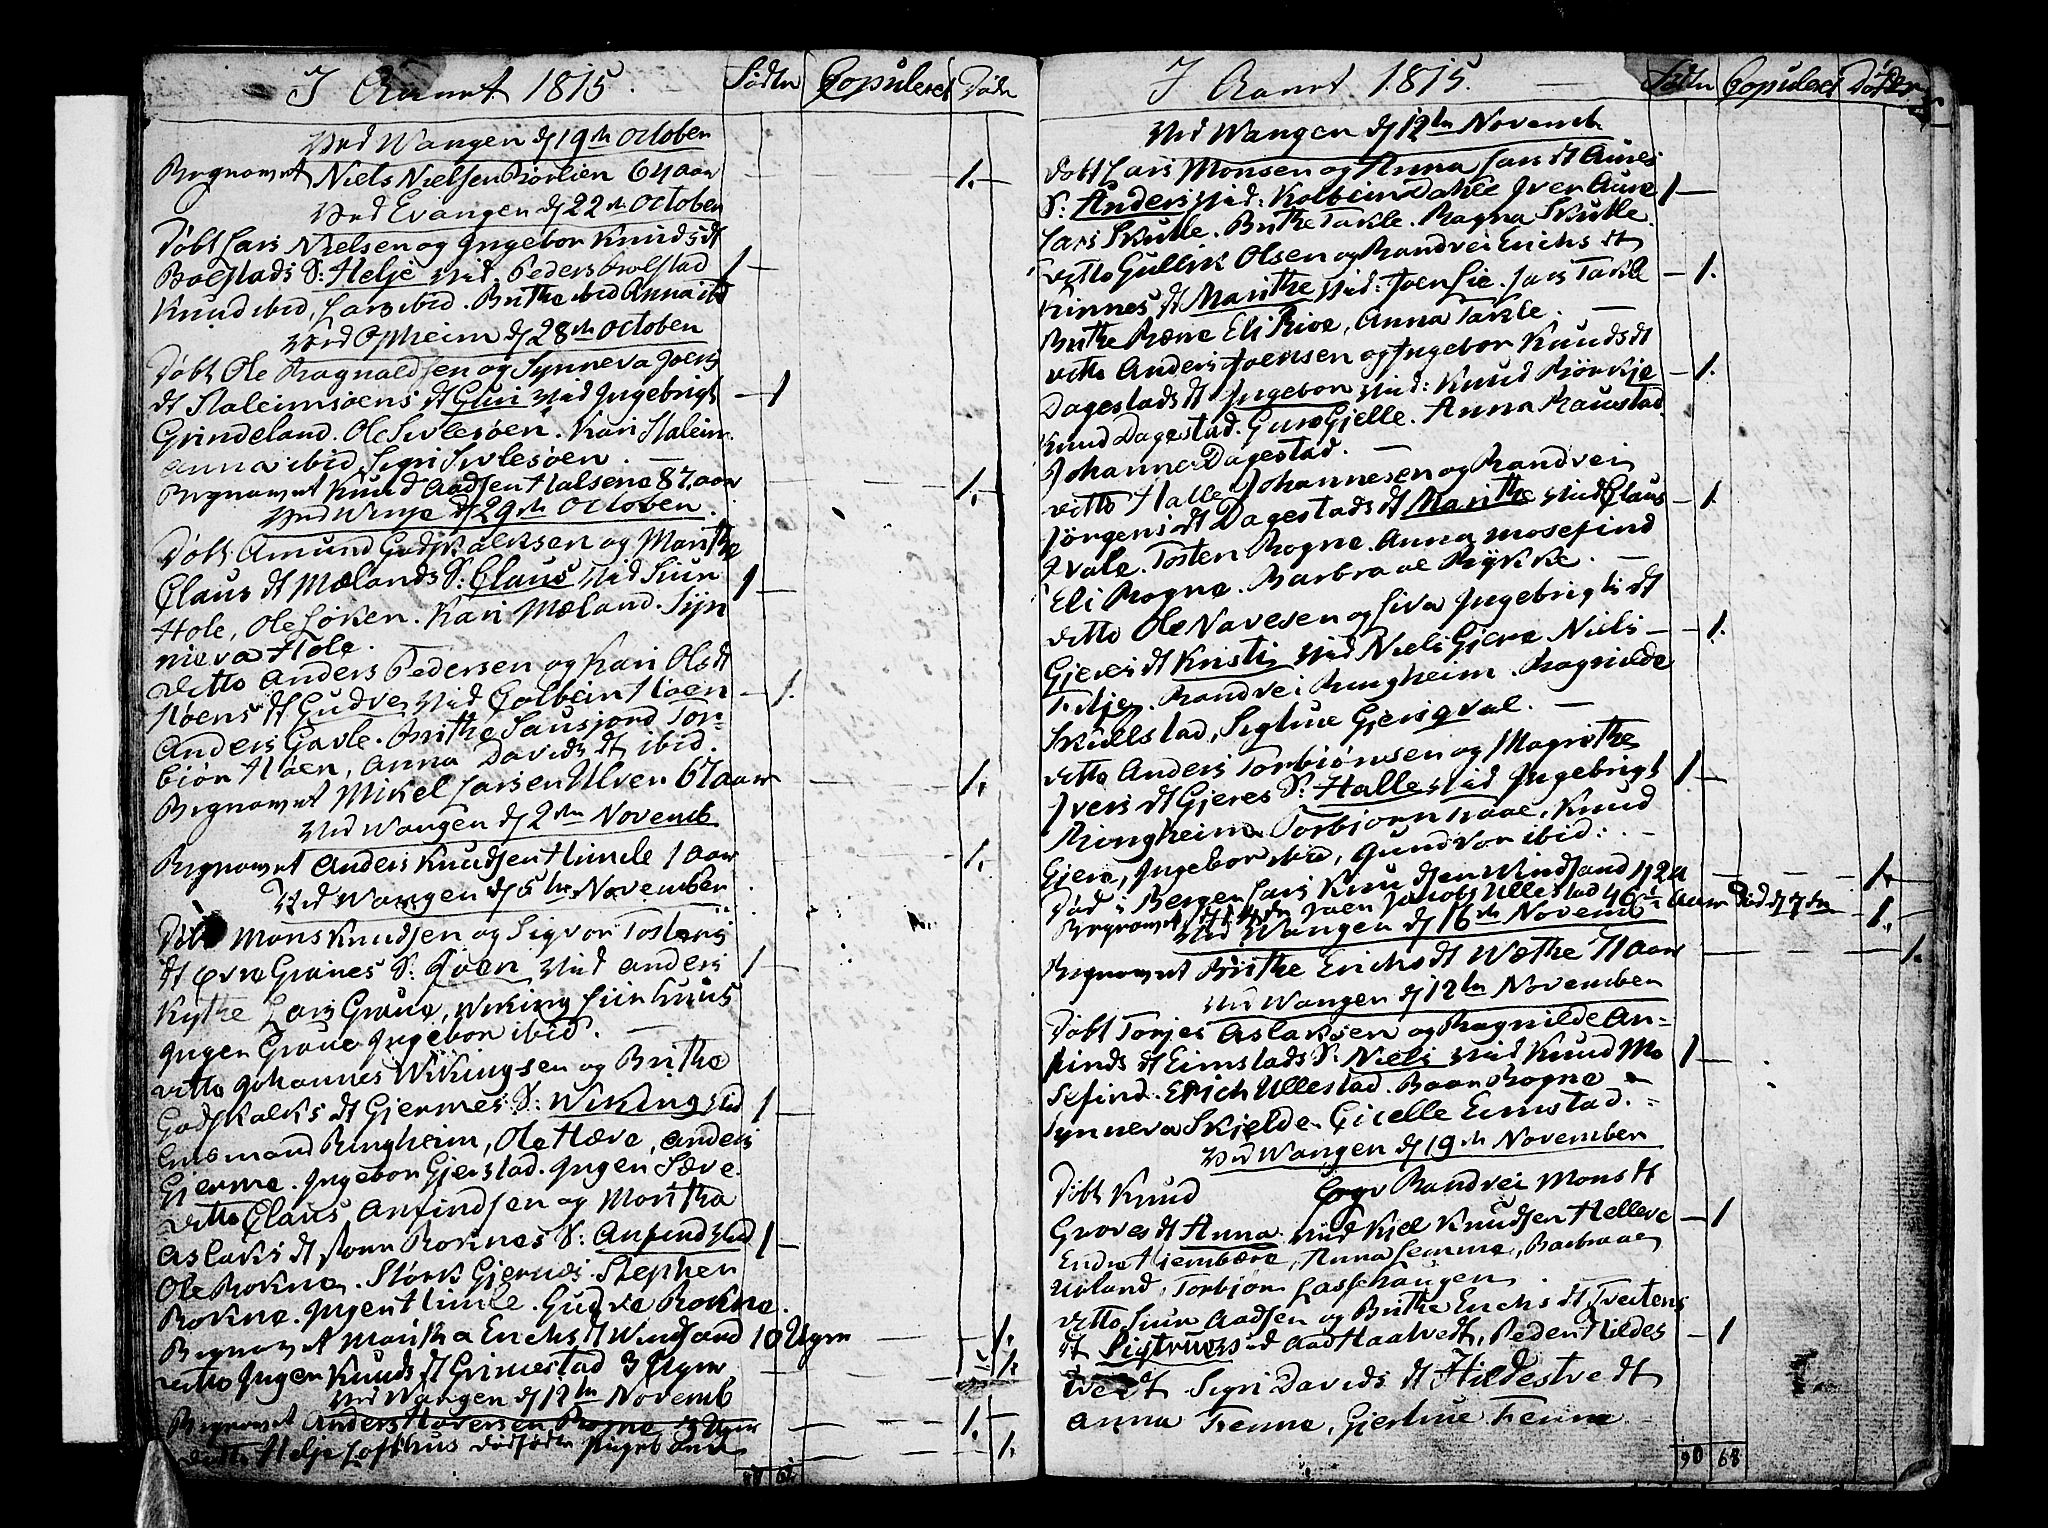 I Aaret 1815. Födte Copuleret Döde
Ved Wangen d 19de October
Begravet Niels Nielsen Rörlien 64 aar 1.
Ved Evangen d 22de October
Döbt Lars Nielsen og Ingebor Knuds dt
Bolstads S: Helje Vid. Peder Bolstad 1
Knud ibid, Lars ibid. Brithe ibid Anna ibd
Ved Opheim d 28de October
Döbt Ole Ragnaldsen og Synneva Joens
dt Staleimsöens dt Guri Vid Ingebrigt 1
Grindeland. Ole Sivlesöen. Kari Staleim.
Anna ibid Sigri Sivlesöen.
Begravet Knud Aadsen Halsene 87. aar 1.
Ved Winje d 29de October.
Döbt Amund Godskalksen og Marithe
Claus dt Mælands S: Claus Vid Siur 1
Hole, Ole Löken. Kari Mæland. Syn
nieva Hole.
ditto Anders Pedersen og Kari Ols dt
Höens dt Gudve Vid Colbein Höen 1.
Anders Gavle. Brithe Sausjord Tor=
biör Höen, Anna Davids dt ibid.
Begravet Mikel Larsen Ulven 67 aar 1.
Ved Wangen d 2den Novemb
Begravet Anders Knudsen Himle 1 aar 1.
Ved Wangen d 5te November
Döbt Mons Knudsen og Sigvor Tostens
dt övre Graues S: Sven Vid Anders 1
Kythe Lars Graue, Wiking Liirhuus
Ingen Graue Ingebor ibid.
ditto Johannes Wikingsen og Brithe
Godskalks dt Gjermes S: Wiking Vid 1
Amund Ringheim, Ole Hæve, Anders
Gjerme. Ingebor Gjerstad. Ingen Sæve.
ditto Claus Anfindsen og Maritha
Aslaks dt Roknes S: Anfind Vid 1
Ole Rokne. Störk Gjernes. Stephen
Rokne. Ingen Himle. Gudve Rokne.
Begravet Maritha Erichs dt Windsand 10 Uger 1.
ditto Ingen Knuds dt Grimestad 3 Uger 1.
Ved Wangen d 12te Novemb
Begravet Anders Haversen Rogne 3 Uger 1.
ditto Helje Lofthus dödfödte Pigeb 1.
I Aaret 1815. Födte Copuleret Döde
Ved Wangen d 12te Novemb
Döbt Lars Monsen og Anna Lars dt Aures
S: Anders Vid: Kolbein Dahle Iver Aure 1
Lars Skutle. Brithe Takle. Ragna Skutle
ditto Gullik Olsen og Randvei Erichs dt
Kinnes dt Marithe Vid: Joen Lie. Lars Takle 1.
BritheRæne Eli Rioe, Anna Takle.
ditto Anders Joensen og Ingebor Knuds dt
Dagestads dt Ingebor Vid: Knud Rörkje 1.
Knud Dagestad. Guro Gjelle. Anna Raustad
Johanne Dagestad.
ditto Halle Johannesen og Randvei
Jörgens dt Dagestads dt Marithe Vid Claus 1
Qvale. Tosten Rogne. Anna Mosefind
Eli Rogne. Barbra ae Rykke.
ditto Ole Navesen og Siva Ingebrigts dt
Gjeres dt Kristi Vid Niels Gjere Niels 1.
Tilje. Randvei Ringheim. Ragnilde
Skiellstad, Siglue Gjersqval.
ditto Anders Torbiörnsen og Magrithe
Ivers dt Gjeres S: Halle Vid Ingebrigt 1
Riongheim Torbiorn Haae, Knud
Gjere, Ingebor ibid, Gundvor ibid.
Död i Bergen Lars Knudsen Windsand 42 a 1.
Begravet Joen Jacobs Ullestad 46½ Aar Död d 7de 1.
Ved Wangen d 16de Novemb
Begravet Brithe Erichs dt Wæthe 71 aar 1.
Ved Wangen d 12te November
Döbt Torjes Aslaksen og Ragnilde An=
finds dt Eimstads S: Niels Vid Knud Mo 1
sefind. Erich Ullestad. Baar Rogne
Synneva Skjelde Gicelle Eimstad.
Ved Wangen d 19de November
Döbt Knud og Randvei Mons dt
Groves dt Anna Vid Kiel Knudsen Helleve 1
Endre Hiembære, Anna Lemme, Barbra ae
Uvland, Torbiör Lassehaugen
ditto Siur Aadsen og Brithe Erichs dt Tveitens
dt Sigtrues Vid Aad Haatvedt, Peder Hildes 1
tvedt Sigri Davids dt Hildestvedt
Anna Fenne, Gjertrue Fenne
90 68